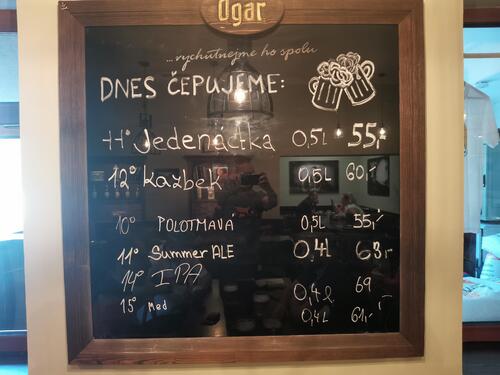 Ogar
...vychutnejme ho spolu
DNES ČEPUJEME:
11° Jedenáctka 0,5L 55,-
12° Kazbek 0,5L 60,-
10° POLOTMAVÁ 0,5L 55,-
11° Summer ALE 0,4L 63,-
14° IPA 0,4L 69,-
15° Med 0,4L 61,-